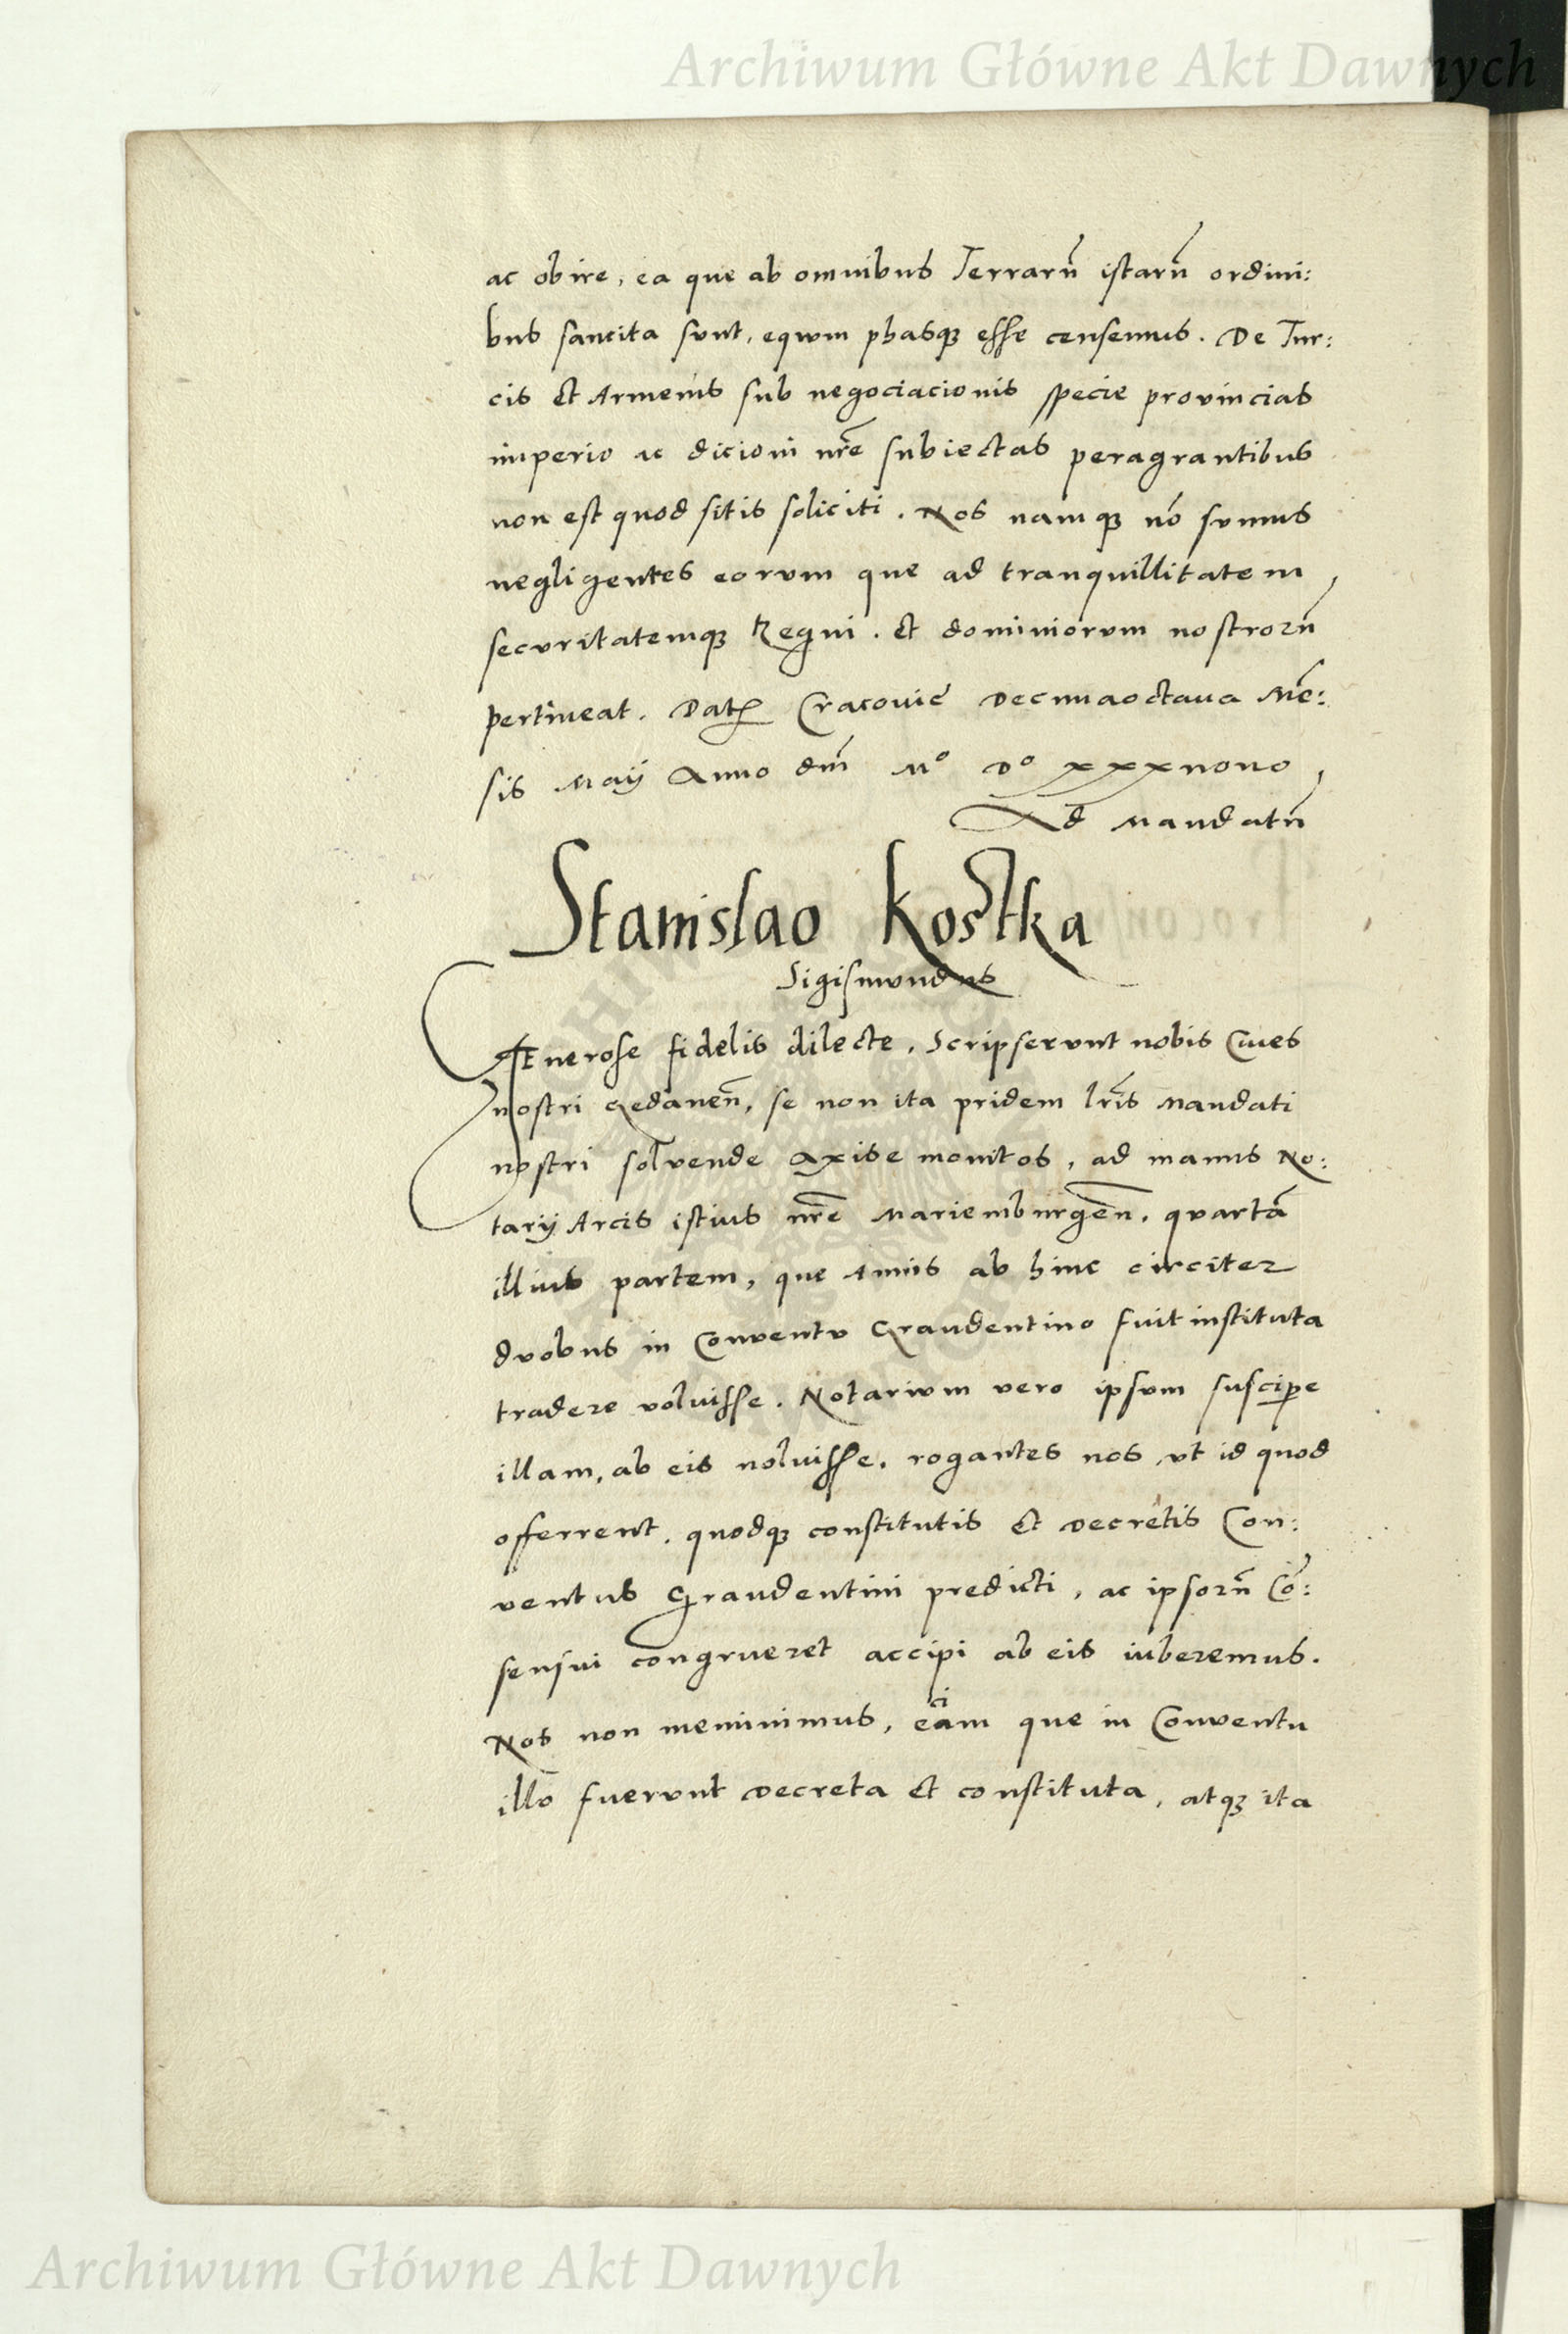 Archiwum Główne Akt Dawnych
ac obire, ea que ab omnibus Terrarũ istarũ ordini:
bus sancita sunt, equum phasqꝫ esse censemus. De Tur:
cis Et Armenis sub negociacionis specie provincias
imperio ac dicioni nr̃e subiectas peragrantibus
non est quod sitis soliciti. Nos namqꝫ nõ sumus
negligentes eorum que ad tranquillitatem
securitatemqꝫ Regni. Et dominiorum nostrorũ
pertineat. Datꝭ Cracovie Decimaoctava Mẽ:
sis Maij Anno dñi Mº Dº xxxnono
Ad Mandatũ
Stanislao Kostka
Sigismundus
GEnerose fidelis dilecte. Scripserunt nobis Cives
nostri Gedaneñ, se non ita pridem lr̃is Mandati
nostri solvende Axise monitos, ad manus No:
tarij Arcis istius nr̃e Mariemburgeñ. quartã
illius partem, que Annis ab hinc circiter
duobus in Conventu Graudentino fuit instituta
tradere voluisse. Notarium vero ipsum suscipe
illam, ab eis noluisse. rogantes nos ut id quod
offerrent, quodqꝫ constitutis Et Decretis Con:
ventus Graudentini predicti, ac ipsorũ Cõ:
sensui congrueret accipi ab eis iuberemus.
Nos non meminimus, eciam que in Conventu
illo fuerunt Decreta Et constituta, atqꝫ ita
Archiwum Główne Akt Dawnych